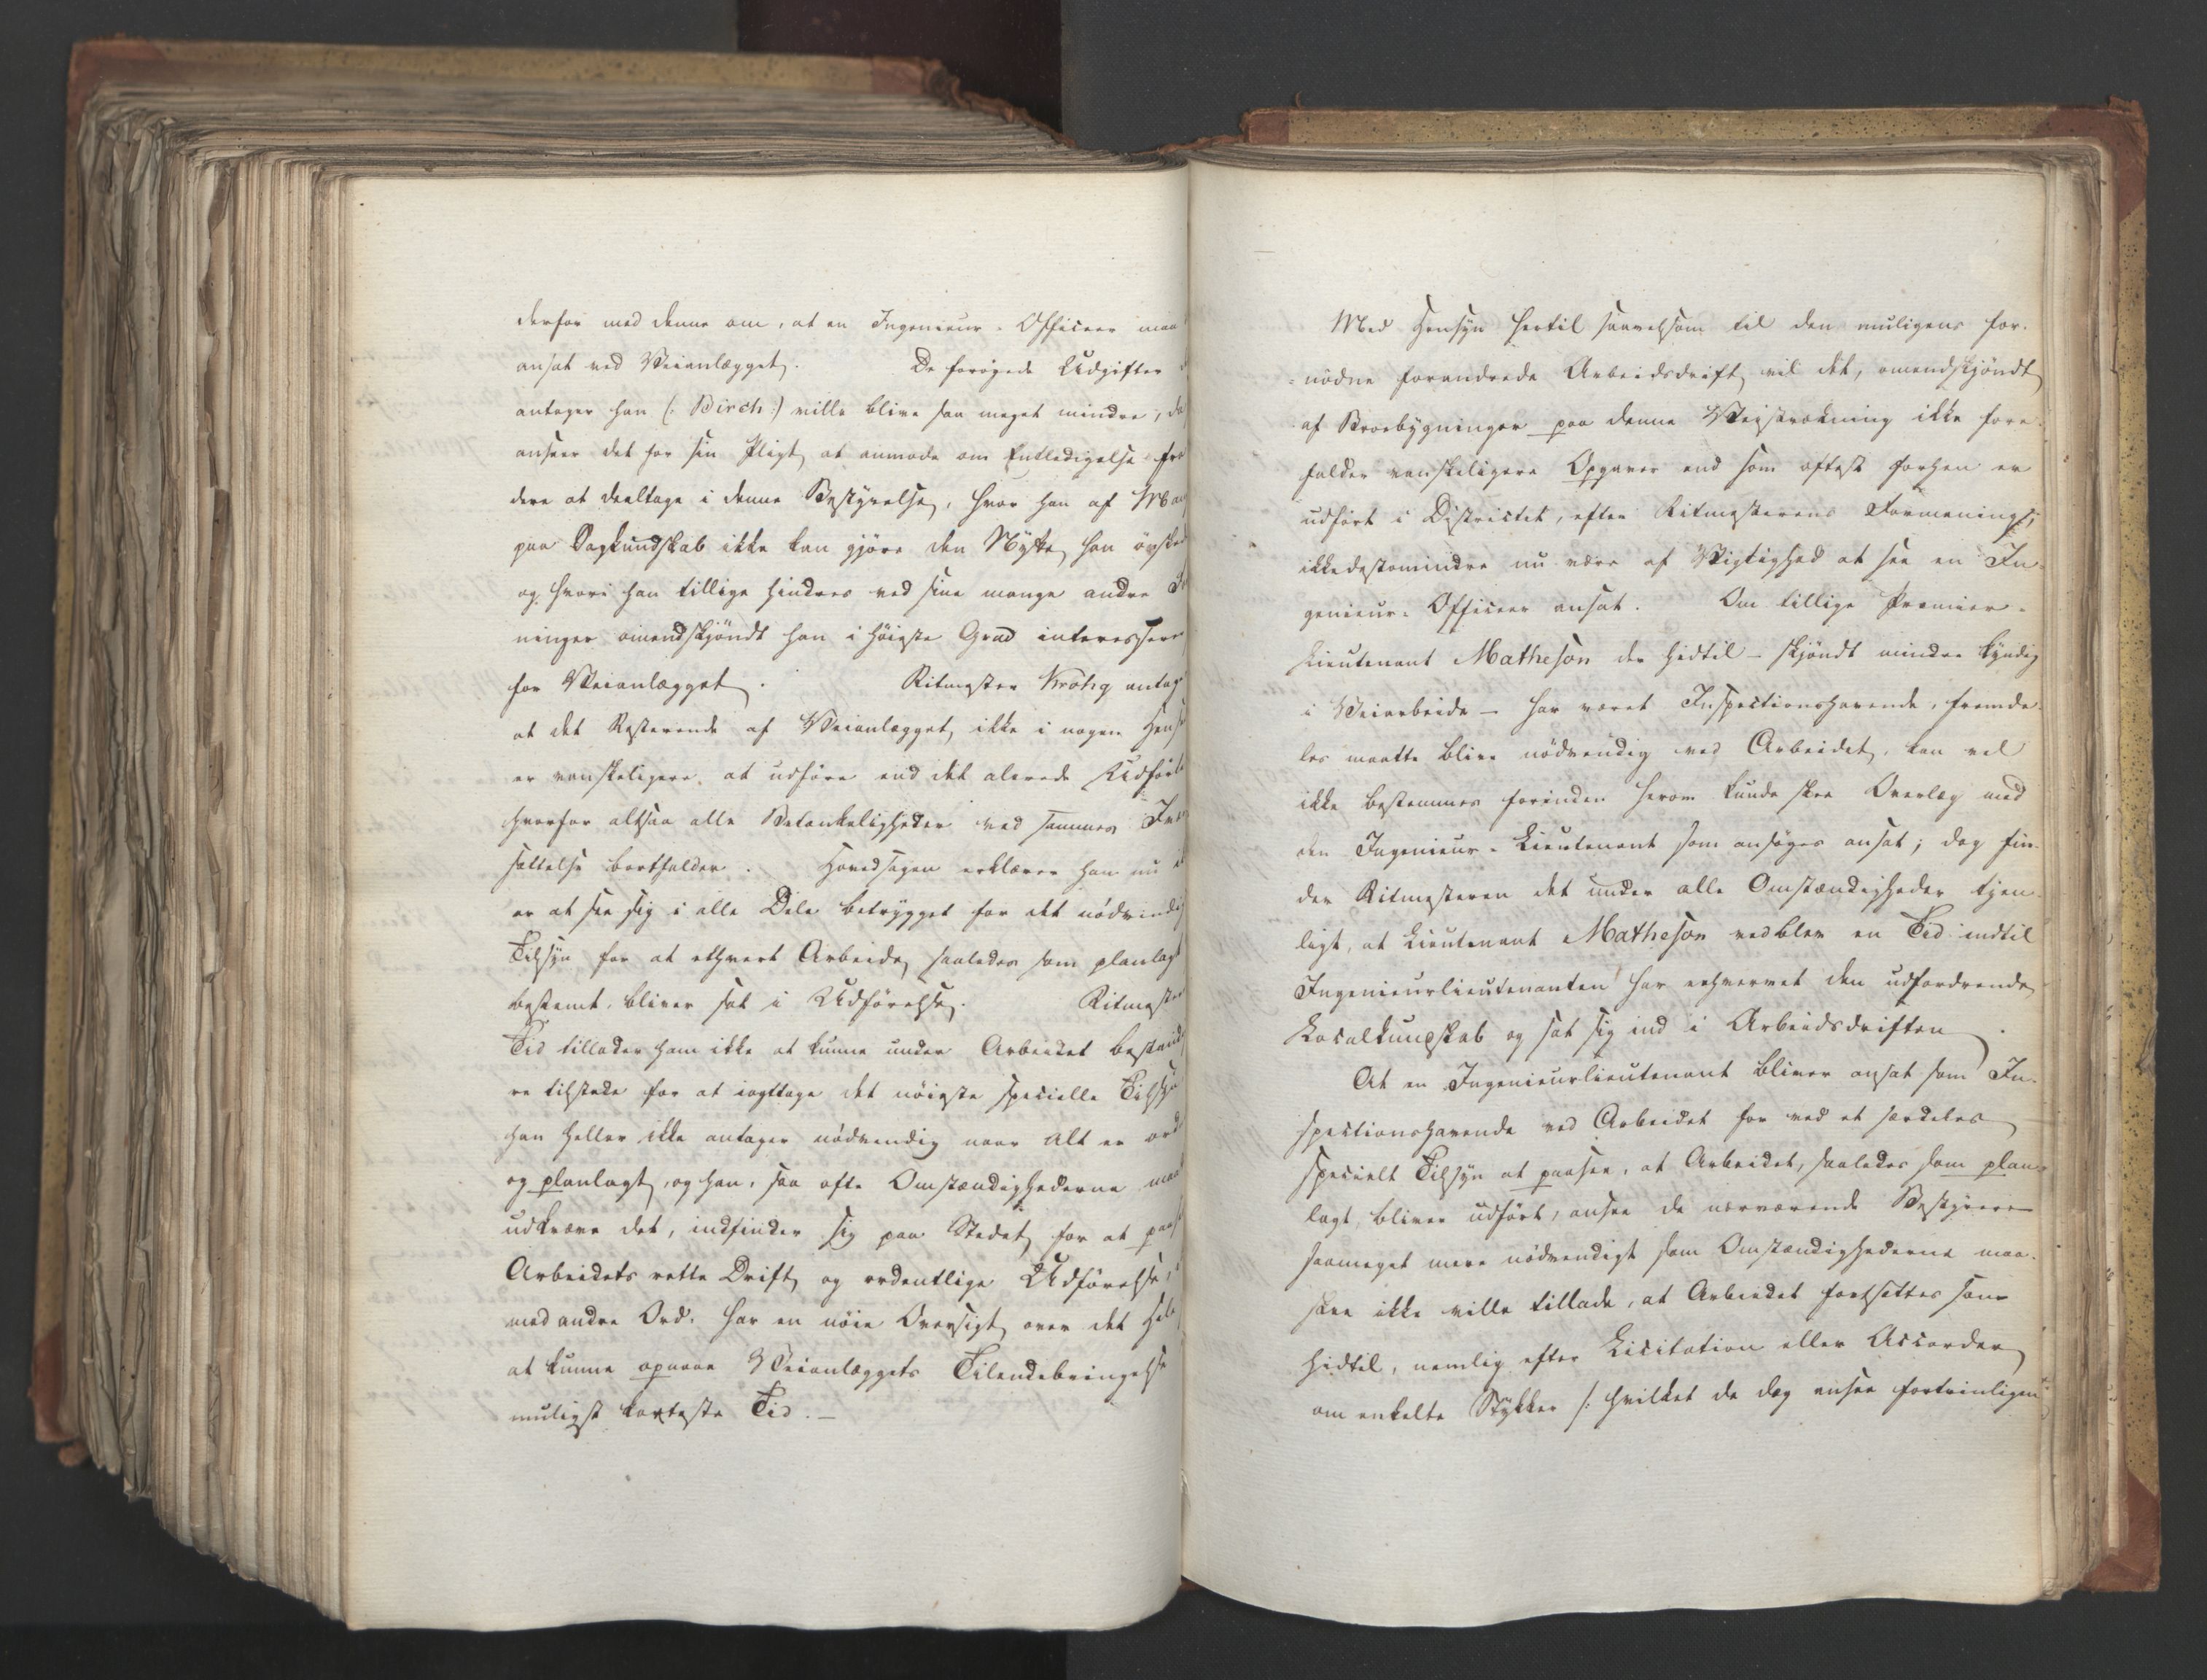 derfor med denne om, at en Ingenieur-Officeer maa
ansat ved Veianlægget. De forøgede Udgifter
antager han (: Birch :) ville blive saa meget mindre, da
anseer det for sin Pligt at anmode om Entledigelse fra
dere at deeltage i denne Bestyrelse, hvor han af Man
paa Sagkundskab ikke kan gjöre den Nytte han önsked
og hvori han tillige hindres ved sine mange andre
ninger omendskjöndt han i höieste Grad interesserer
for Veianlægget. Ritmester Krohg antage
at det Resterende af Veianlægget ikke i nogen Hens
er vanskeligere at udföre end det alerede Udförte
hvorfor altsaa alle Betænkeligheder ved sammes
sættelse bortfalder. Hovedsagen erklærer han nu at
er at see sig i alle Dele betrygget for det nödvendig
Tilsyn for at ethvert Arbeide saaledes som planlagt
bestemt, bliver sat i Udförelse. Ritmester
Tid tillader ham ikke at kunne under Arbeidet bestand
re tilstede for at iagttage det nöieste specielle Tilsyn
han heller ikke antager nödvendig naar Alt er ord
og planlagt, og han, saa ofte Omstændighederne maa
udkræve det, indfinder sig paa Stedet for at paas
Arbeidets rette Drift og ordentlige Udförelse,
med andre Ord: har en nöie Oversigt over det Hele
at kunne opnaae Veianlæggets Tilendebringelse
muligst korteste Tid. —
Med Hensyn hertil saavelsom til den muligens for-
nödne forandrede Arbeidsdrift vil det, omendskjöndt
af Broebygninger paa denne Veistrækning ikke fore-
falder vanskeligere Opgaver end som oftest forhen er
udfört i Districtet, efter Ritmesterens Formening,
ikkedestomindre nu være af Vigtighed at see en In-
genieur-Officeer ansat. Om tillige Premier-
Lieutenant Matheson der hidtil – skjöndt mindre kyndig
i Veiarbeide – har været Inspectionshavende, fremde-
les maatte blive nödvendig ved Arbeidet, kan vel
ikke bestemmes forinden herom kunde skee Overlæg med
den Ingenieur-Lieutenant som ansöges ansat; dog fin-
der Ritmesteren det under alle Omstændigheder tjen-
ligt, at Lieutenant Matheson vedblev en Tid indtil
Ingenieurlieutenanten har erhvervet den udfordrende
Localkundskab og sat sig ind i Arbeidsdriften.
At en Ingenieurlieutenant bliver ansat som In-
spectionshavende ved Arbeidet for ved et særdeles
specielt Tilsyn at paasee, at Arbeidet, saaledes som plan-
lagt, bliver udfört, ansee de nærværende Bestyrere
saameget mere nödvendigt som Omstændighederne maa-
skee ikke ville tillade, at Arbeidet fortsættes som
hidtil, nemlig efter Licitation eller Accorder
om enkelte Stykker (: hvilket de dog ansee fortrinligen